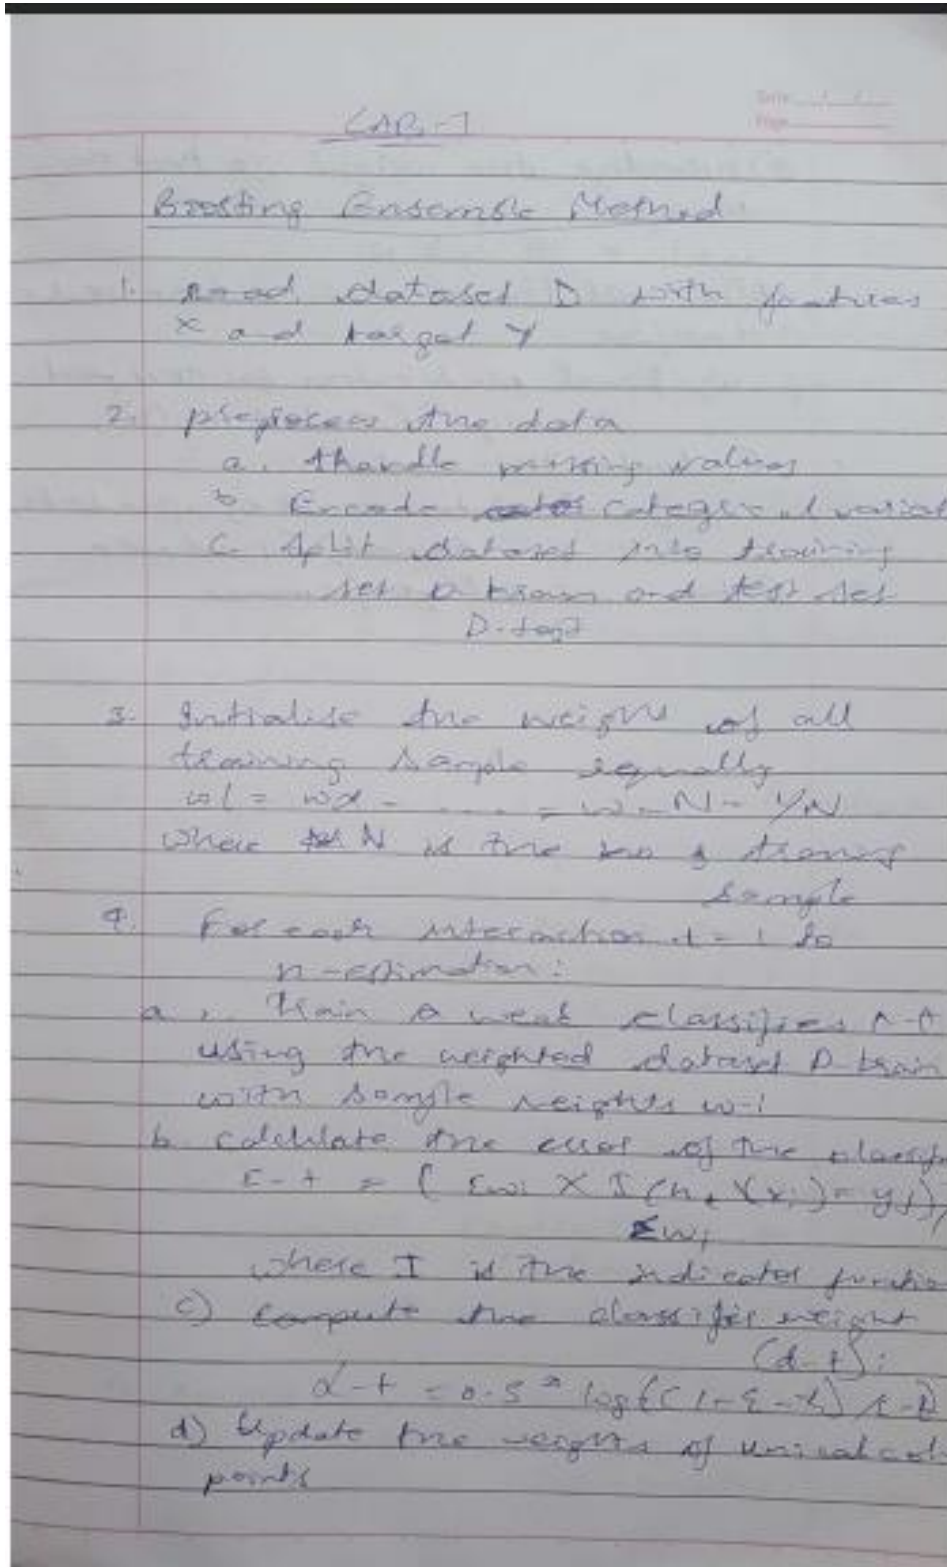 LAB-7
Date
Page
Boosting Ensemble Method
1. read dataset D with features
X and target Y
2. preprocess the data
a. Handle missing values
b Encode categorical
C. Split dataset into training
set D train and test set
D-test
3. Initialise the weight of all
training sample equally
= w-N = 1/N
where N is the no of training
sample
4. For each interaction t = 1 to
n-estimation:
a. Train a weak classifier
using the weighted dataset D-train
with sample weights w-i
b. calculate the error of the
E-t = ( Σwi X I (
Σwi
where I is the indicator
c) compute the classifier weight
(α-t):
α-t = 0.5 * log
d) Update the weights of
points